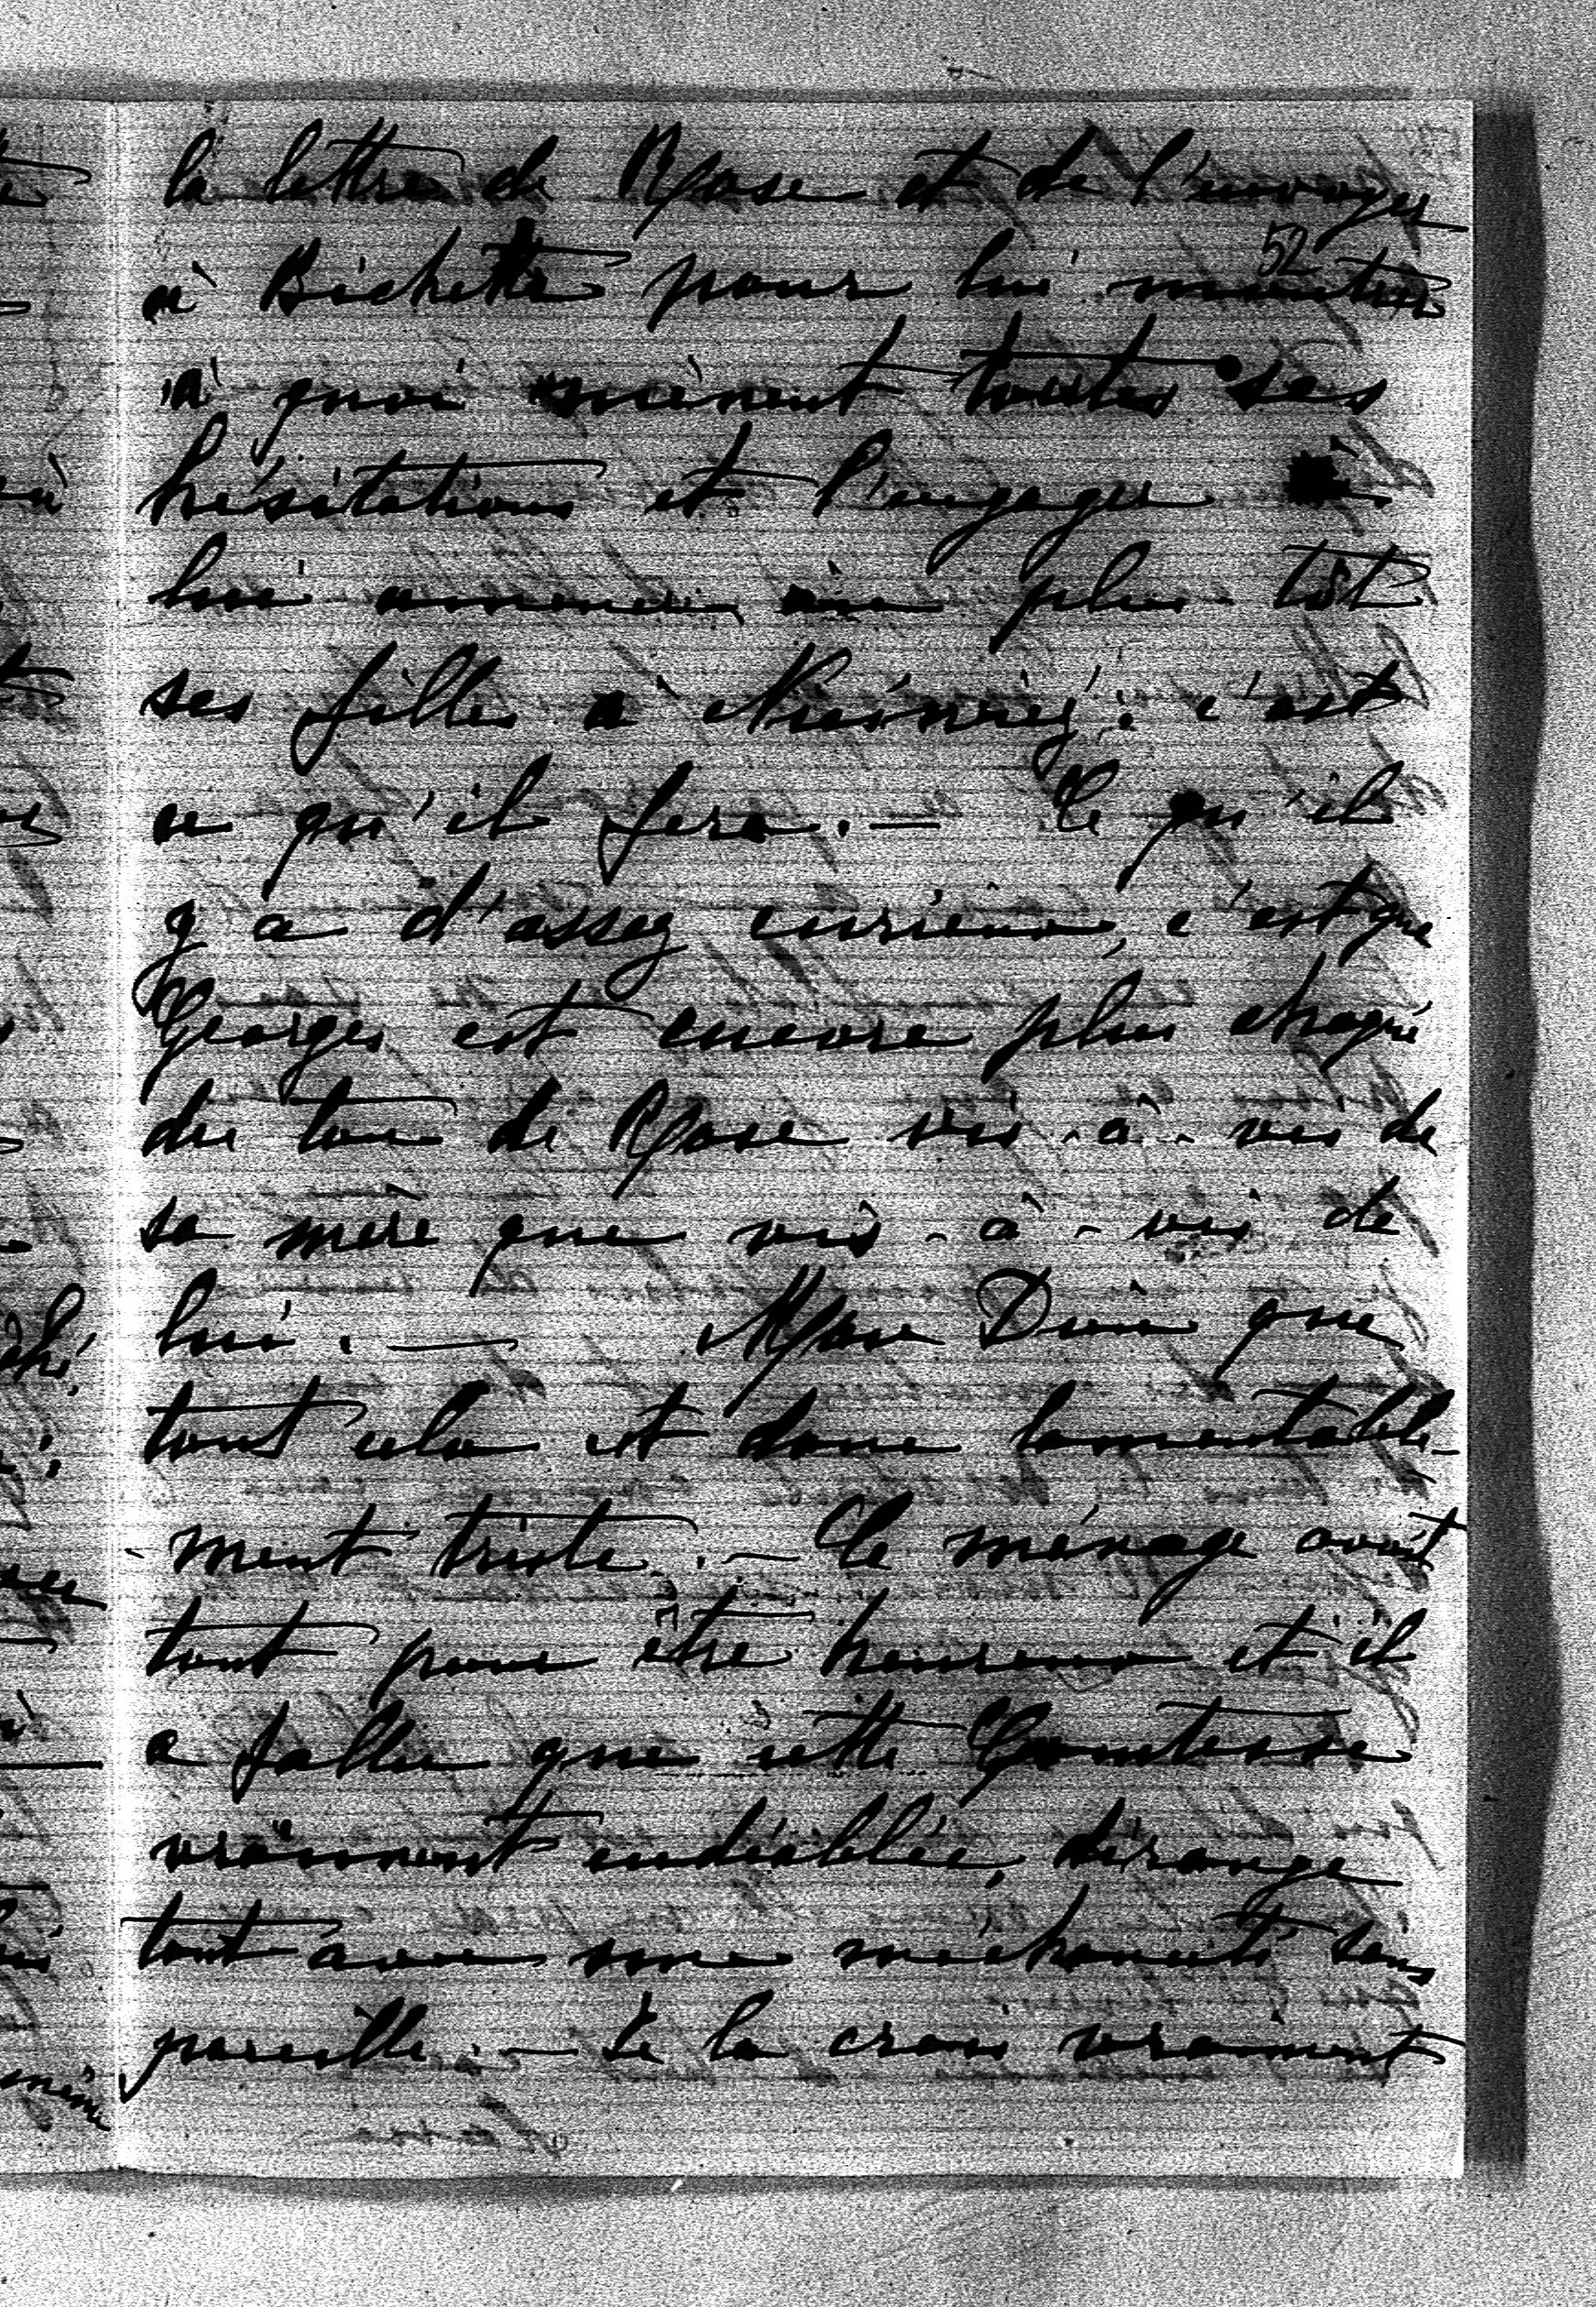 la lettre de Rose et de l'envoyer
52
à Bichette pour lui montrer
à quoi mènent toutes ses
hésitations et l'engager à
lui amener au plus tôt
ses filles à c'est
ce qu'il fera. — Ce qu'il
y a d'assez curieux, c'est que
Georges est encore plus choqué
du ton de Rose vis-à-vis de
sa mère que vis-à-vis de
lui. — Mon Dieu que
tout cela est donc lamentable-
-ment triste. — Ce ménage avait
tout pour être heureux et il
a fallu que cette Comtesse
vraiment endiablée, dérange
tout avec une méchanceté sans
pareille. — Je la crois vraiment